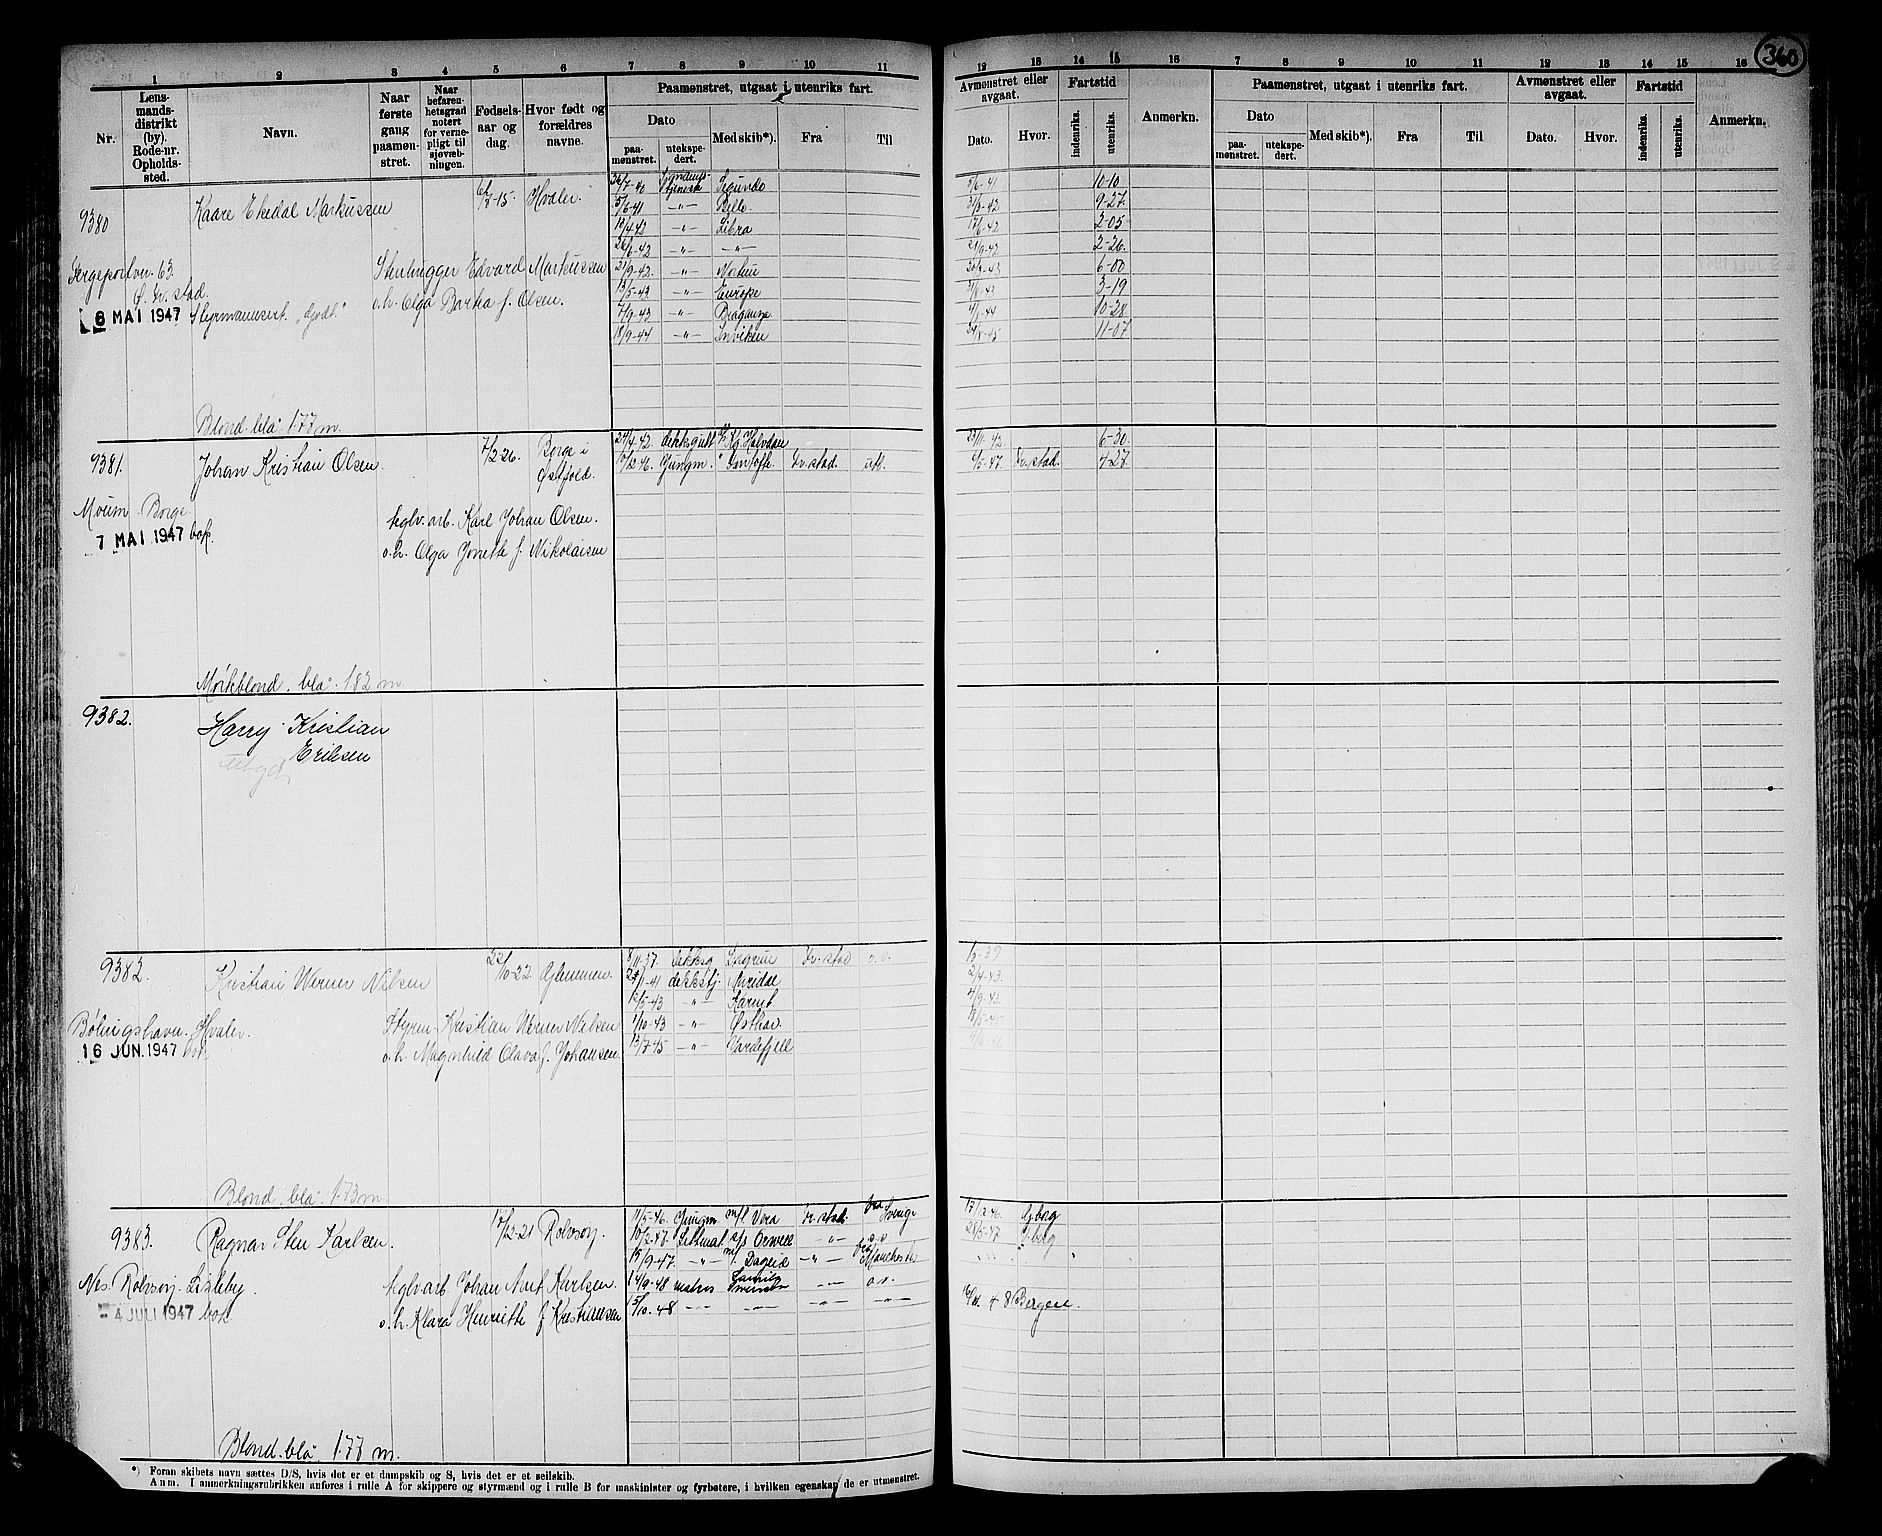 360
1 2 3 4 5 6 7 8 9 10 11
12 13 14 15 16 7 8 9 10 11 12 13 14 15 16
Nr. Lensmandsdistrikt (by). Rode-nr. Opholdssted. Navn. Naar første gang paamønstret. Naar befarenhetsgrad notert for vernepligt til sjøvæbningen. Fødselsaar og dag. Hvor født og forældres navne.
Paamønstret, utgaat i utenriks fart.
Dato paamønstret. utekspedert. Med skib*). Fra Til
Avmønstret eller avgaat. Dato. Hvor. Fartstid indenriks. utenriks. Anmerkn.
Paamønstret, utgaat i utenriks fart.
Dato paamønstret. utekspedert. Med skib*). Fra Til
Avmønstret eller avgaat. Dato. Hvor. Fartstid indenriks. utenriks. Anmerkn.
9380 Kaare Ekedal Markussen 6/7-15 Hvaler.
Segundo 5/6-41 10-10
5/6-41 -"- Bello 31/3-42 9-27
18/4-42 -"- Libra 17/6-42 2-05
26/6-42 -"- -"- 21/9-42 2-26
21/9-42 -"- 6-00
13/5-43 -"- Europe 3-19
7/9-43 -"- Braganza 4/8-44 10-28
18/9-44 -"- Inviken 24/8-45 11-07
63 Stenhugger Edvard Markussen
stad. o.h. Olga Bertha f. Olsen.
8 MAI 1947 Styrmannsert. "Godt"
Blond. blå. 1.77 m.
9381. Johan Kristian Olsen. 7/2-26. Borge i Østfold.
24/4-42. dekksgutt Kg Halvdan 23/11-42 6-30
10/12-46. Jungm. Fr.stad. utl. 6/5-47. Fr.stad. 4-27
Moum Borge
7 MAI 1947 bok.
Karl Johan Olsen.
o.h. Olga f. Nikolaisen
Mørkblond. blå. 1.82 m
9382. Harry Kristian
Eriksen
Utgår
9382. Kristian Werner Nilsen 22/10-22. Glemmen.
8/11-37 dekksg Fr.stad o.v. 1/5-39
27/1-41 dekkstj. 2/4-43.
12/5-43 -"- 4/9-43.
1/10-43 -"- Østhav. 18/5-45
13/7-45 -"- Vardefjell
Hvaler. Styrm. Kristian Werner Nilsen
16 JUN. 1947 bok o.h. Magnhild Olava f. Johansen.
Blond. blå. 1.73 m
9383. Ragnar Sten Karlsen. 17/12-21 Rolvsøy.
11/5-46. Jungm m/l Vera Fr.stad. Sverige 17/12-46 Gborg
10/2-47. Lettmat. s/s Orwell -"- o.v 28/5-47 Gborg
15/9-47. -"- -"- Manchester
14/9-48 matros -"- o.v.
15/10-48 -"- -"- -"- -"- 48 Bergen.
Nes. Rolvsøy. Lisleby. Johan Karlsen.
4 JULI 1947 bok o.h. Klara Henriette f Kristiansen
Blond. blå 1.77 m.
*) Foran skibets navn sættes D/S, hvis det er et dampskib og S, hvis det er et seilskib.
Anm. I anmerkningsrubrikken anføres i rulle A for skippere og styrmænd og i rulle B for maskinister og fyrbøtere, i hvilken egenskap de er utmønstret.